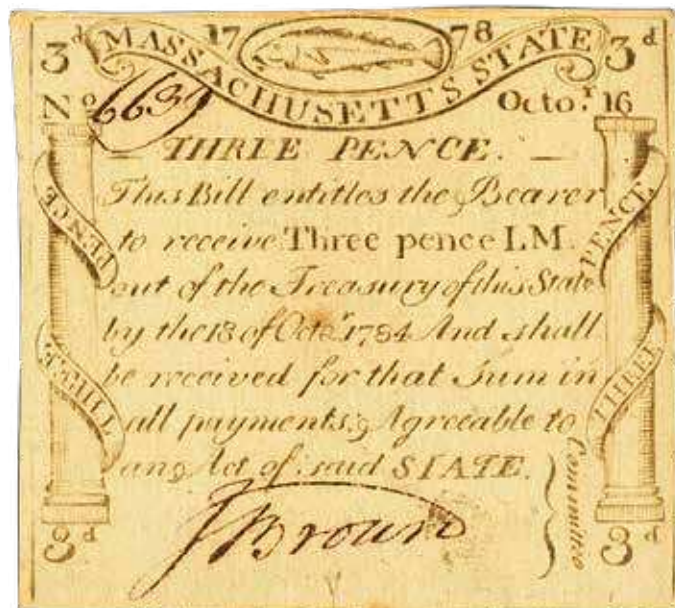 3d 17 78 3d
MASSACHUSETTS STATE
No 6639 Octor. 16
THREE PENCE.
This Bill entitles the Bearer
to receive Three pence LM.
out of the Treasury of this State
by the 18 of Octr. 1784 And shall
be received for that Sum in
all payments, Agreeable to
an Act of said STATE.
PENCE
THREE
PENCE
THREE
Committee
JBrown
3d 3d